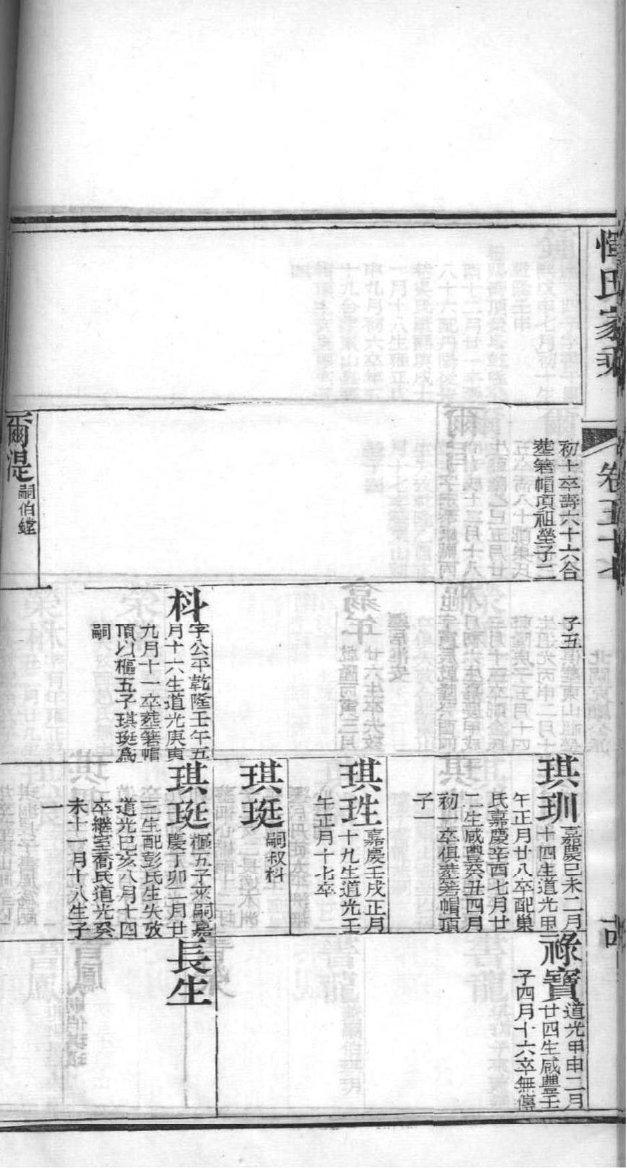 惲氏家乘
卷五十
初十卒壽六十六合
葬箬帽頂祖塋子二
爾湜
嗣伯鏜
子五
科
字公平乾隆壬午五
月十六生道光庚寅
九月十一卒葬箬帽
頂以樞五子琪珽爲
嗣
琪玔
嘉慶己未二月
十四生道光甲
午正月廿八卒配巢
氏嘉慶辛酉七月廿
二生咸豐癸丑四月
初一卒俱葬箬帽頂
子一
琪珄
嘉慶壬戌正月
十九生道光壬
午正月十七卒
琪珽
嗣叔科
琪珽
樞五子來嗣嘉
慶丁卯二月廿
三生配彭氏生失攷
道光己亥八月十四
卒繼室喬氏道光癸
未十一月十八生子
一
祿寶
道光甲申二月
廿四生咸豐壬
子四月十六卒無傳
長生